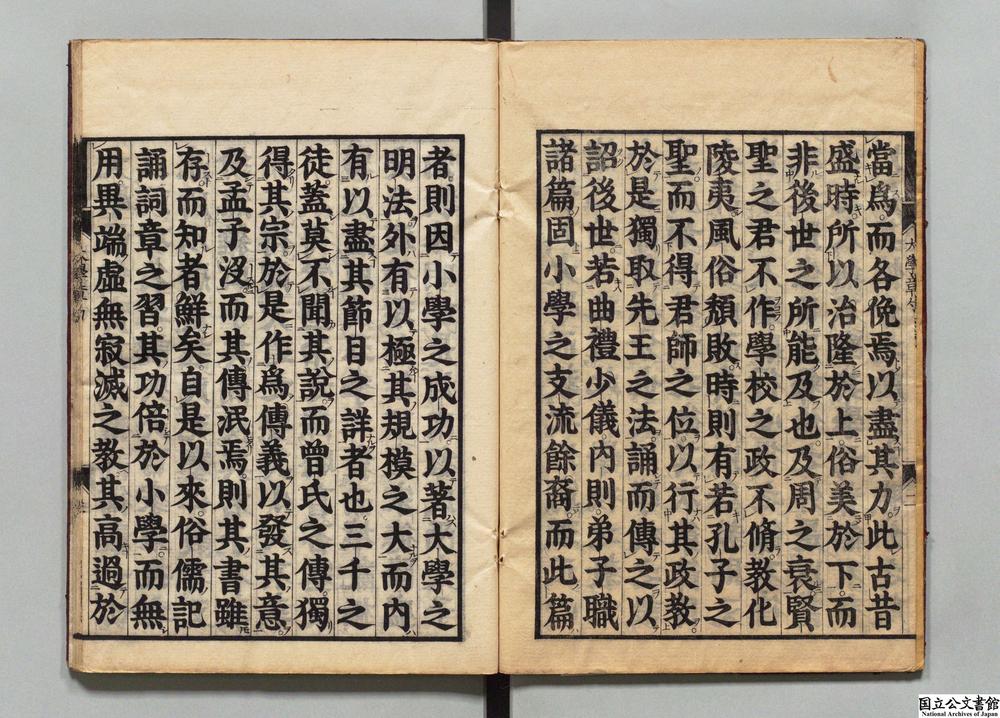 當爲而各俛焉以盡其力此古昔
盛時所以治隆於上俗美於下而
非後世之所能及也及周之衰賢
聖之君不作學校之政不脩教化
陵夷風俗頽敗時則有若孔子之
聖而不得君師之位以行其政教
於是獨取先王之法誦而傳之以
詔後世若曲禮少儀内則弟子職
諸篇固小學之支流餘裔而此篇
者則因小學之成功以著大學之
明法外有以極其規模之大而内
有以盡其節目之詳者也三千之
徒蓋莫不聞其說而曾氏之傳獨
得其宗於是作爲傳義以發其意
及孟子沒而其傳泯焉則其書雖
存而知者鮮矣自是以來俗儒記
誦詞章之習其功倍於小學而無
用異端虛無寂滅之教其高過於
国立公文書館
National Archives of Japan